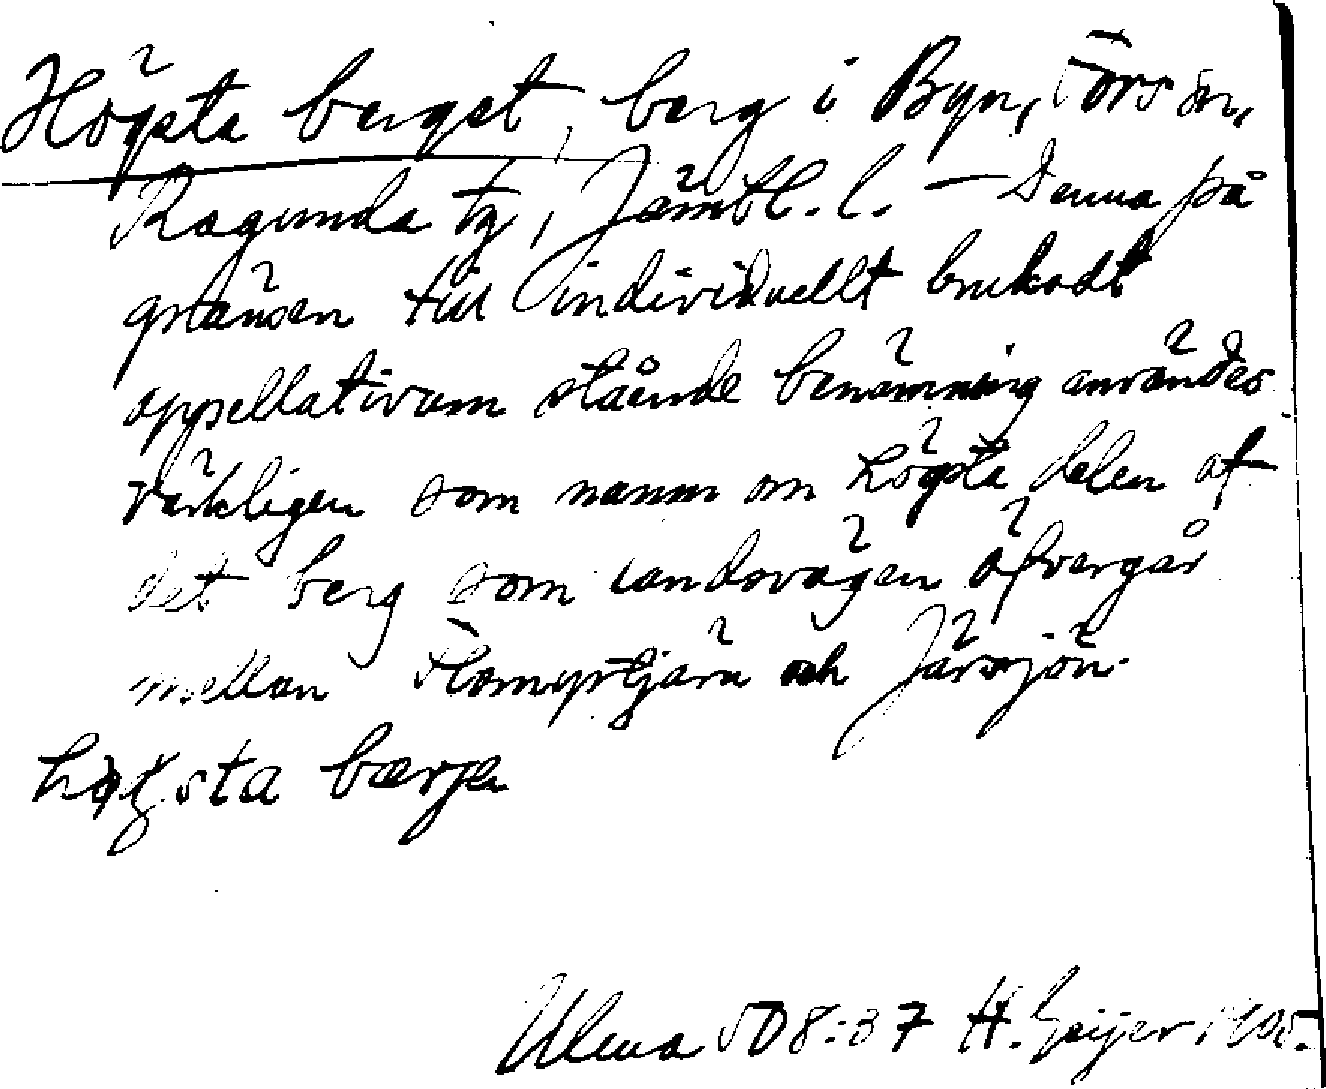 Högsta berget, berg i Byn, Fors sn,
Ragunda tg, Jämtl. l. – Denna på
gränsen till individuellt brukadt
appellativum stående benämning användes
värkligen som namn om högsta delen af
det berg som landsvägen öfvergår
mellan och Järsjön.
bærje
Ulma 508:37 H. Geijer 1905.